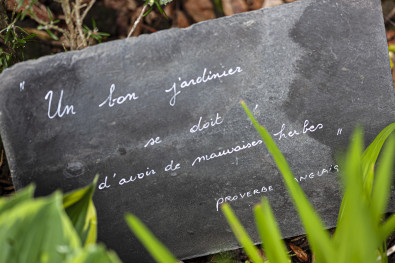 " Un bon jardinier
se doit
d'avoir de mauvaises herbes "
PROVERBE ANGLAIS